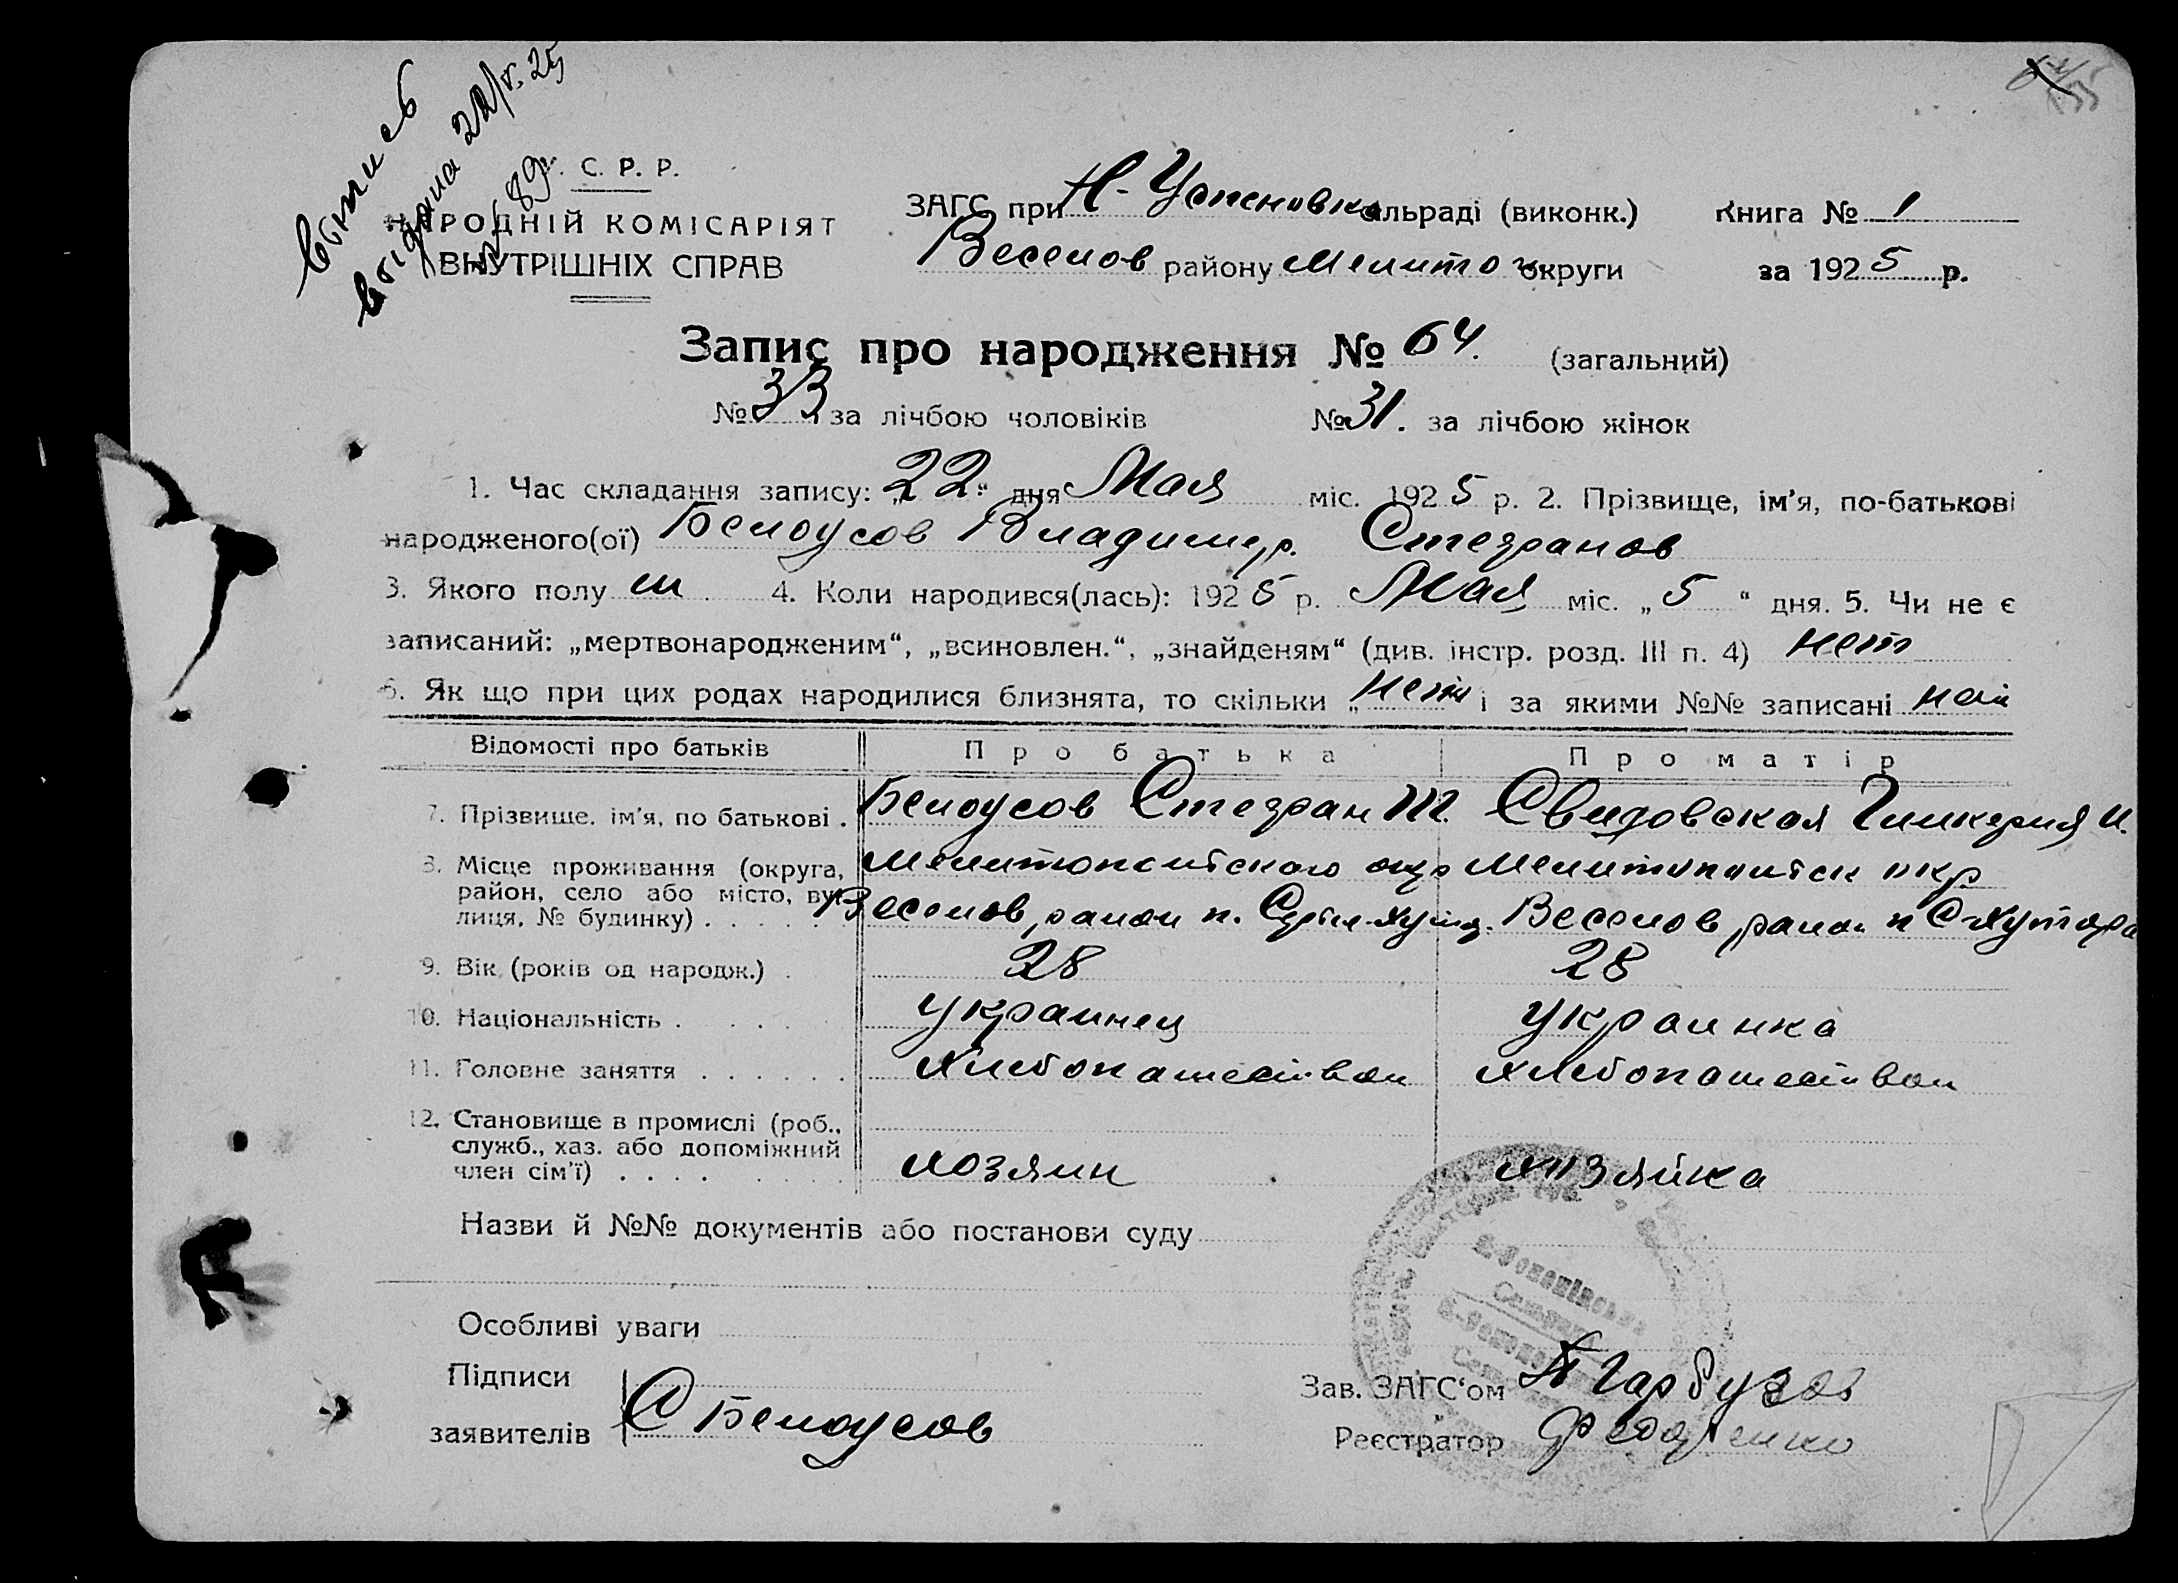 выпись
С. Р. Р.
НАРОДНІЙ КОМІСАРІЯТ
ВНУТРІШНІХ СПРАВ
ЗАГС при Н-Успеновко сільраді (виконк.) Книга № 1
Веселов району Мелито округи за 1925 р.
Запис про народження № 64. (загальний)
№ 33 за лічбою чоловіків № 31. за лічбою жінок
1. Час складання запису: „22“ дня Мая міс. 1925 р. 2. Прізвище, ім’я, по-батькові
народженого(ої) Белоусов Владимир. Стефанов
3. Якого полу м 4. Коли народився(лась): 1925 р. Мая міс. „5“ дня. 5. Чи не є
записаний: „мертвонародженим“, „всиновлен.“, „знайденям“ (див. інстр. розд. III п. 4) нет
6. Як що при цих родах народилися близнята, то скільки „нет і за якими №№ записані
Відомості про батьків Про батька Про матір
7. Прізвище. ім’я, по батькові . Белоусов Стефан Т. Свидовская Гликерия И.
8. Місце проживання (округа, Мелитопольского окр Мелитопольск окр
район, село або місто, ву-
лиця, № будинку) . . . . . . Веселов, район п. Веселов, район п С-Хутора
9. Вік (років од народж.) . 28 28
10. Національність . . . . . украинец украинка
11. Головне заняття . . . . . . хлебопашеством хлебопашеством
12. Становище в промислі (роб.,
служб., хаз. або допоміжний
член сім’ї) . . . . . . . . хозяин хозяйка
Назви й №№ документів або постанови суду
Особливі уваги
Підписи
заявителів С Белоусов
Зав. ЗАГС‘ом Гарбузов
Реєстратор Федоренко